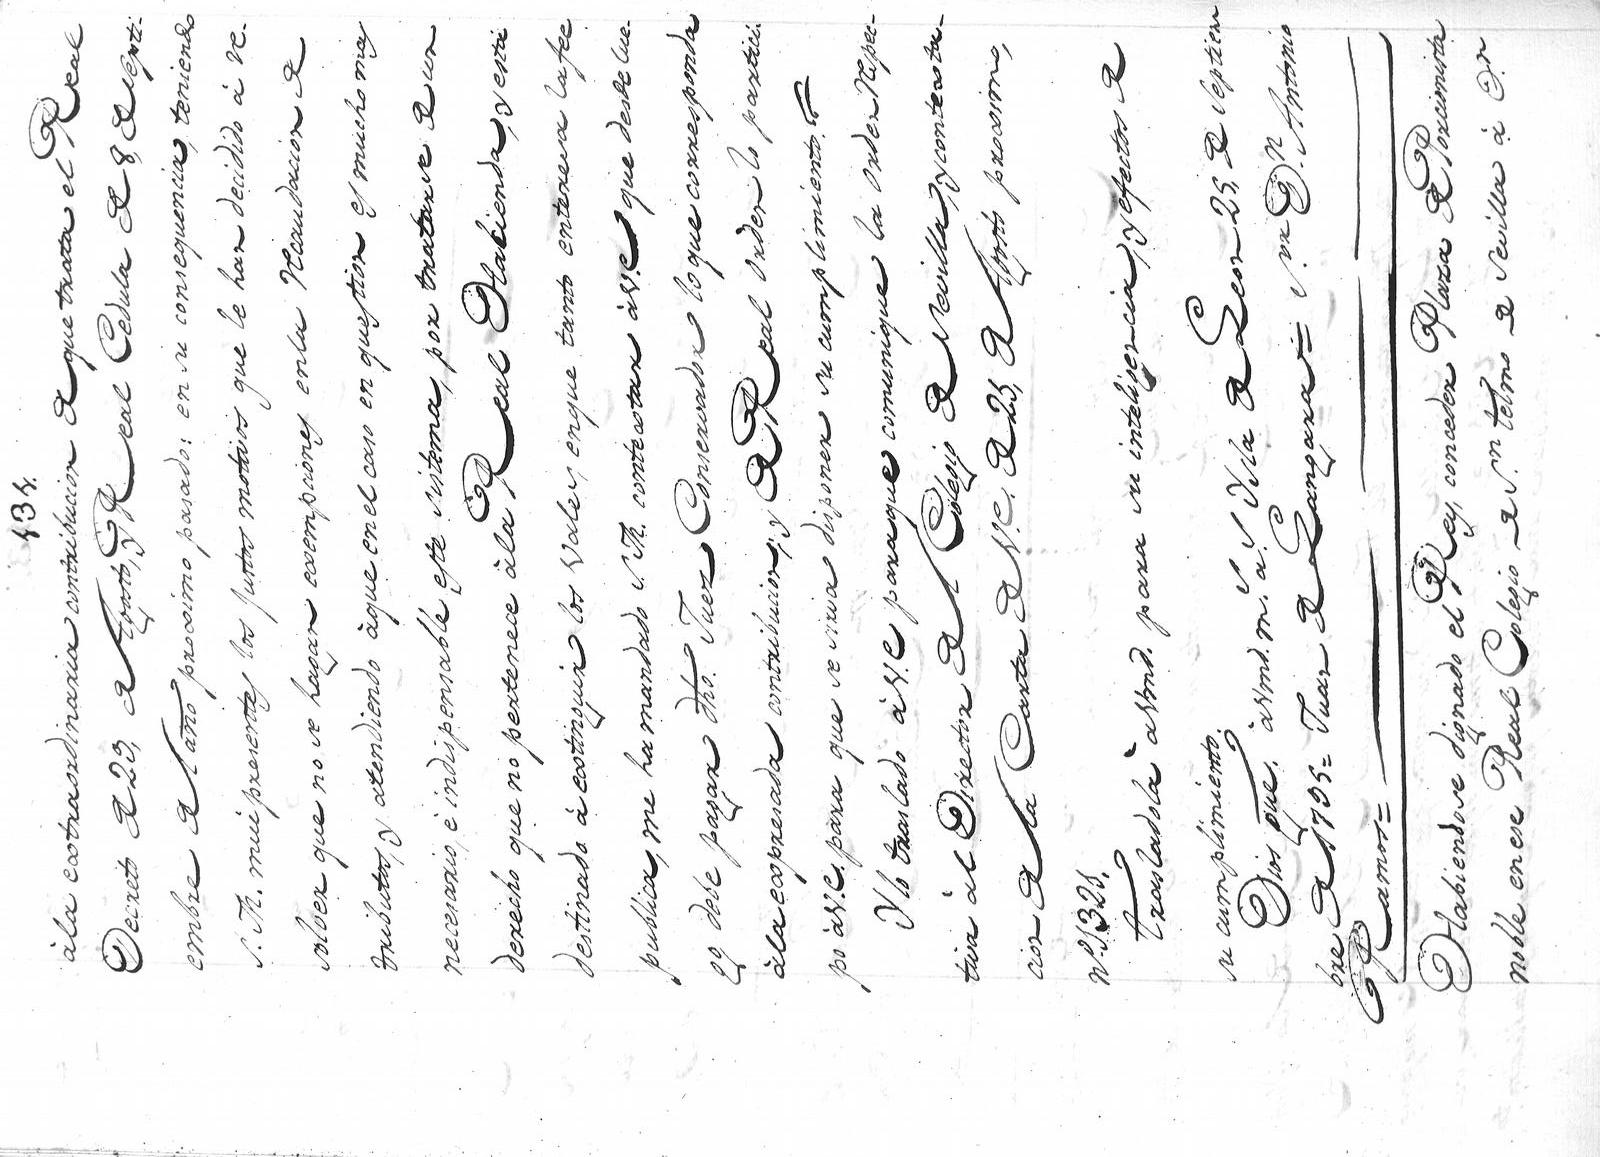 135.
à la extraordinaria contribucion de que trata el Real
Decreto de 23, de Agosto, y Real Cedula de 8, de Septi-
embre del año proximo pasado: en su consequencia, teniendo
S. M. mui presentes los justos motivos que le han decidido à re-
solver que no se hagan exempciones en la Recaudacion de
tributos, y atendiendo à que en el caso en question es mucho mas
necesario, è indispensable este sistema, por tratarse de un
derecho que no pertenece à la Real Hacienda, y està
destinado à extinguir los Vales, en que tanto interesa la fee
publica, me ha mandado S. M. contextar à V.E. que desde lue-
go debe pagar dho. Juez Conservador lo que corresponda
à la expresada contribucion; y de Real orden lo partici-
po à V.E. para que se sirva disponer su cumplimiento.
Y lo traslado à V.E. para que comunique la orden respec-
tiva àl Director del Colegio de Sevilla, y contexta-
cion de la Carta de V.E. de 25, de Agosto proximo,
nº. 1325.
trasladola à Vmd. para su inteligencia, y efectos de
su cumplimiento.
Dios gue. à Vmd. m.s a.s Ysla de Leon 25, de Septiem
bre de 1795= Juan de Langara= S.or D.n Antonio
Ramos=
Habiendose dignado el Rey conceder Plaza de Porcionista
noble en ese Real Colegio de S.n telmo de Sevilla à D.n